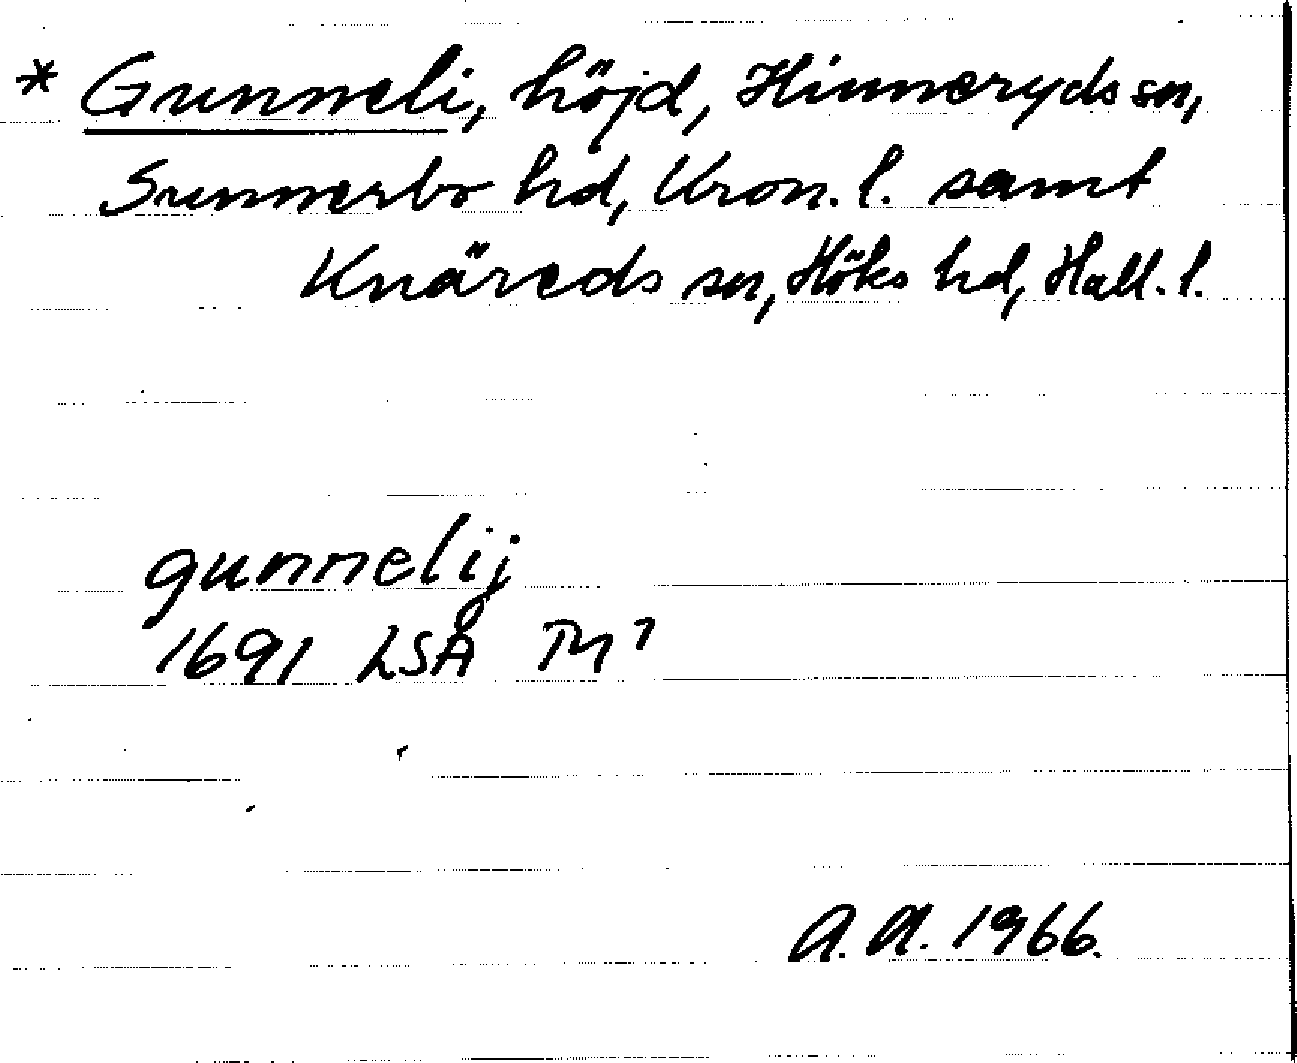 * Gunneli, höjd, Hinneryds sn,
Sunnerbo hd, Kron. l. samt
Knäreds sn, Höks hd, Hall. l.
gunnelij
1691 LSA
A. A. 1966.